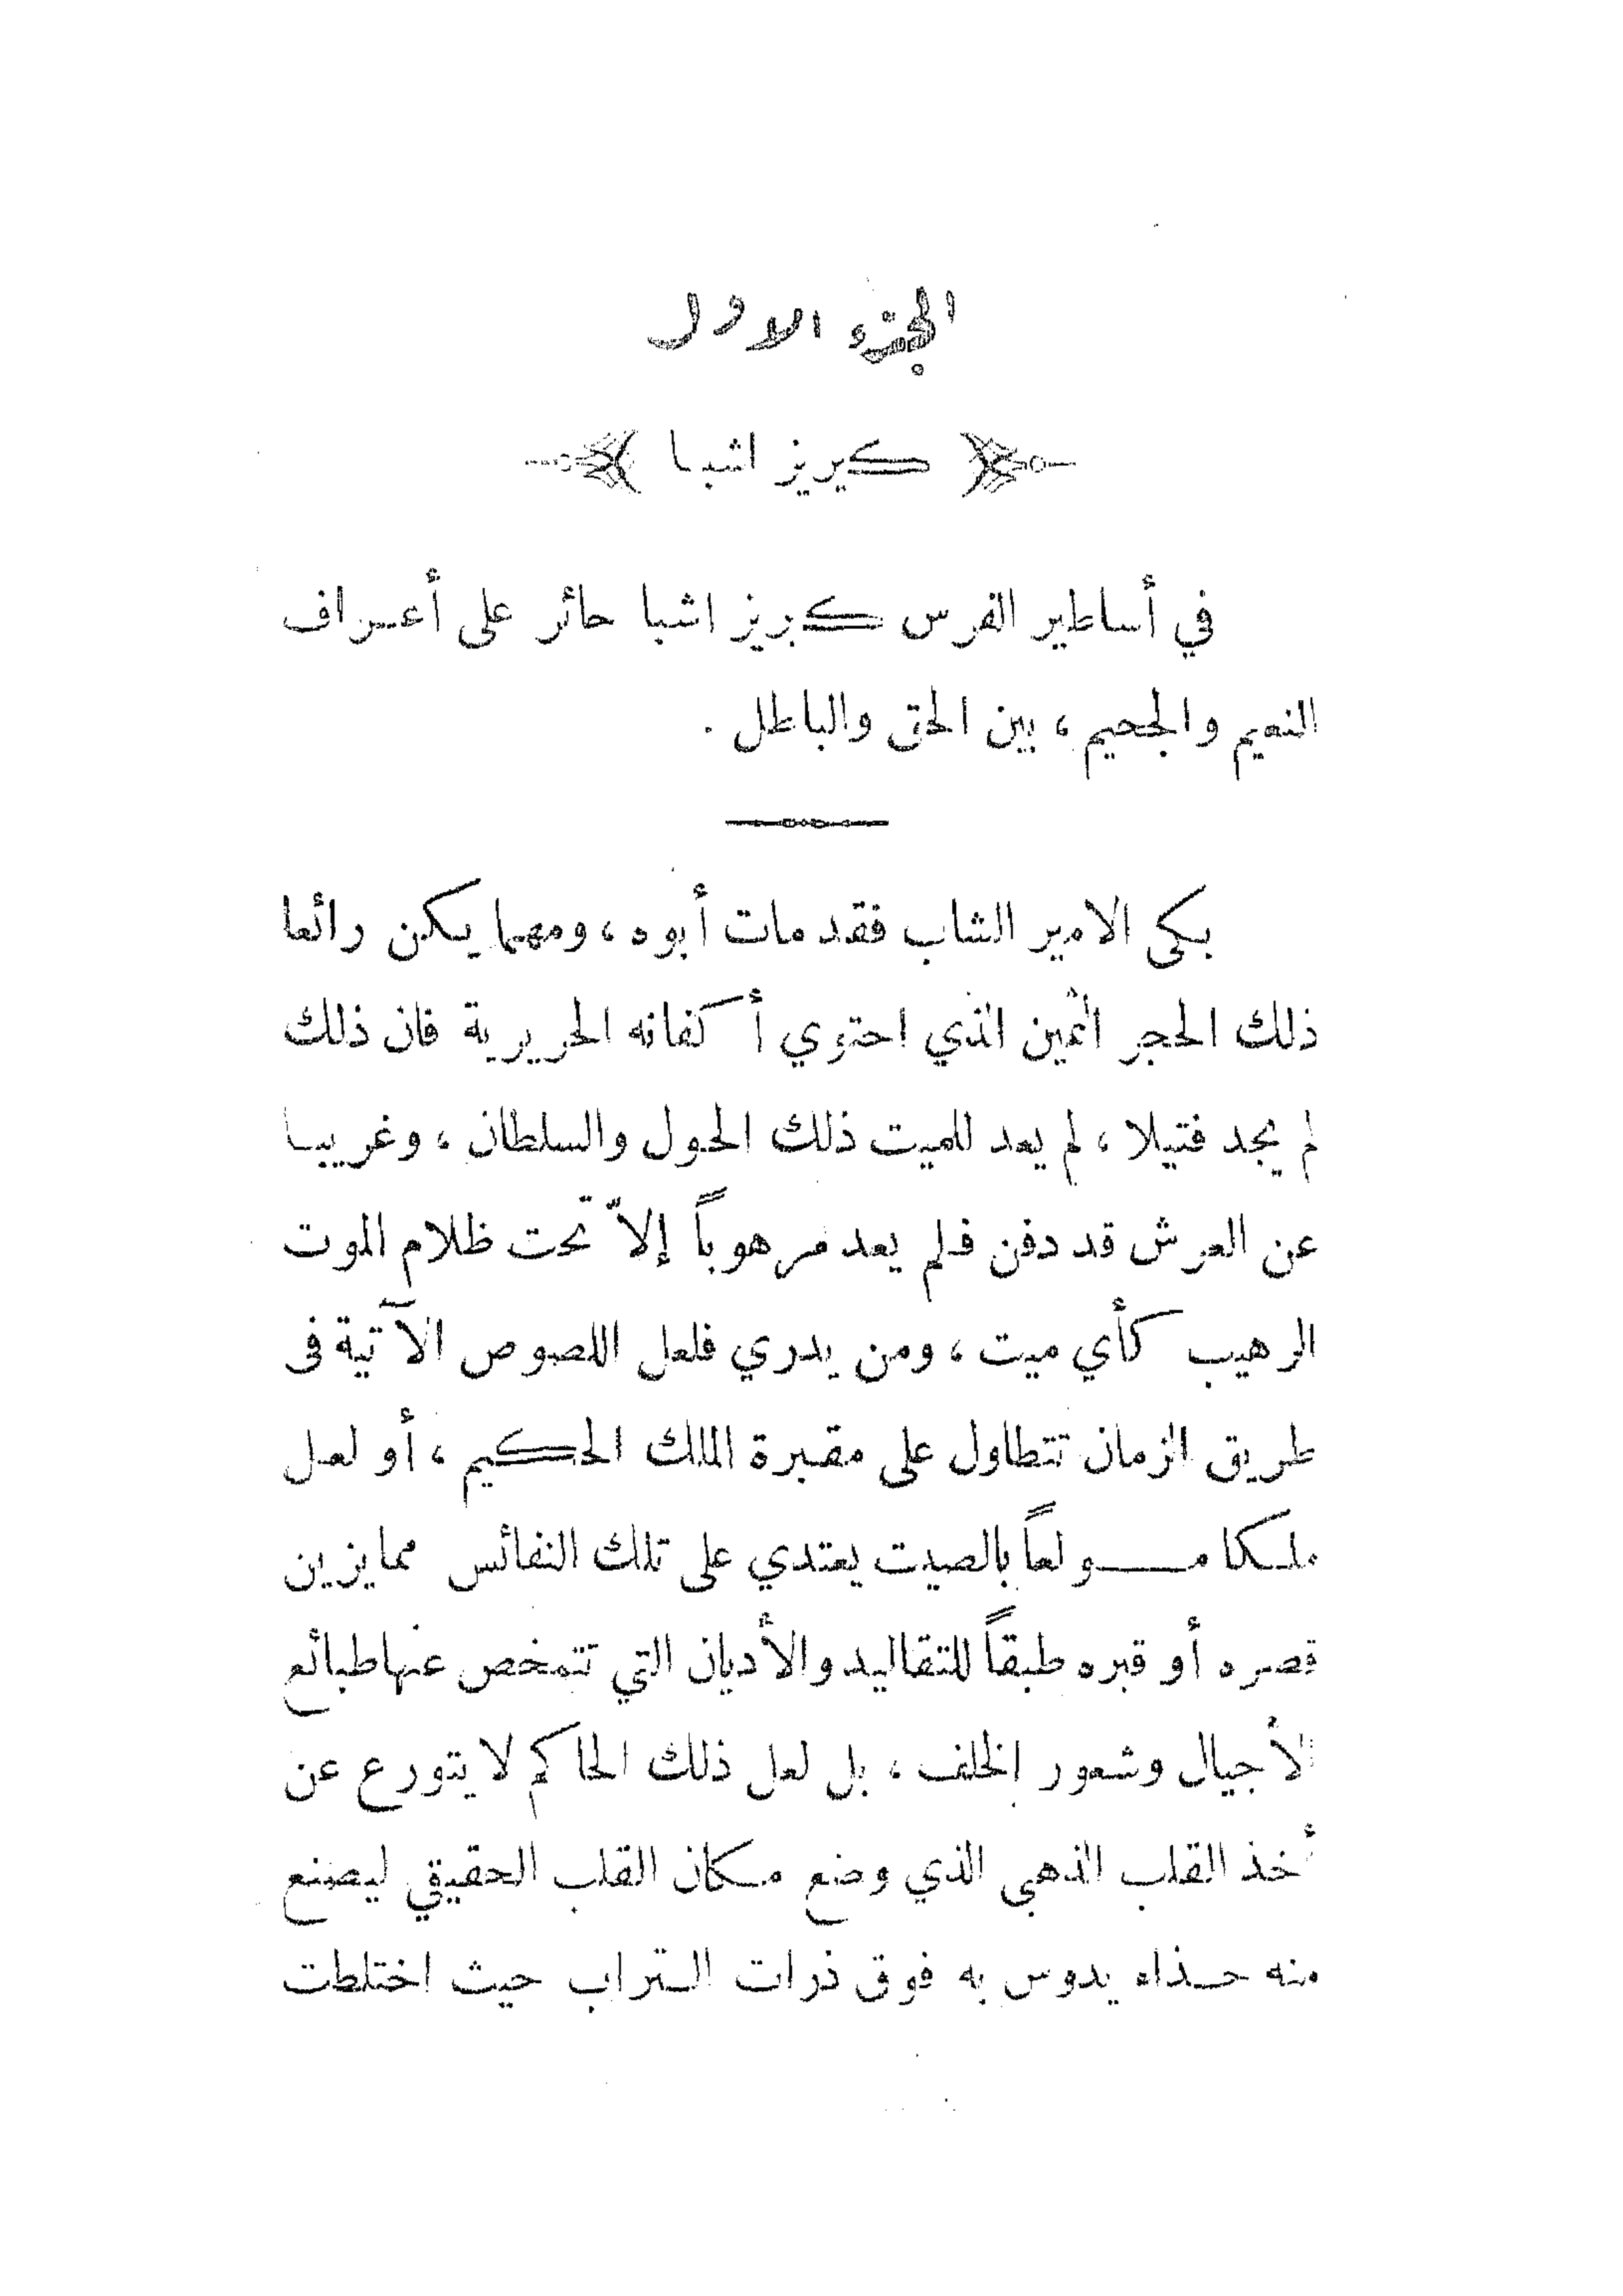 الجزء الاول
كيريز اشبا
في أساطير الفرس كبريز اشبا حائر على أعراف
النعيم والجحيم ، بين الحق والباطل .
بكى الامير الشاب فقد مات أبوه ، ومهما يكن رائعا
ذلك الحجر الثمين الذي احتوي أكفانه الحريرية فان ذلك
لم يجد فتيلا ، لم يعد للميت ذلك الحول والسلطان ، وغريبا
عن العرش قد دفن فلم يعد مرهوباً إلاّ تحت ظلام الموت
الرهيب كأي ميت ، ومن يدري فلعل اللصوص الآتية فى
طريق الزمان تتطاول على مقبرة الملك الحكيم ، أو لعل
ملكا مولعاً بالصيت يعتدي على تلك النفائس مما يزين
قصره أو قبره طبقاً للتقاليد والأديان التي تتمخض عنها طبائع
الأجيال وشعور الخلف ، بل لعل ذلك الحاكم لا يتورع عن
أخذ القلب الذهبى الذي وضع مكان القلب الحقيقي ليصنع
منه حذاء يدوس به فوق ذرات التراب حيث اختلطت